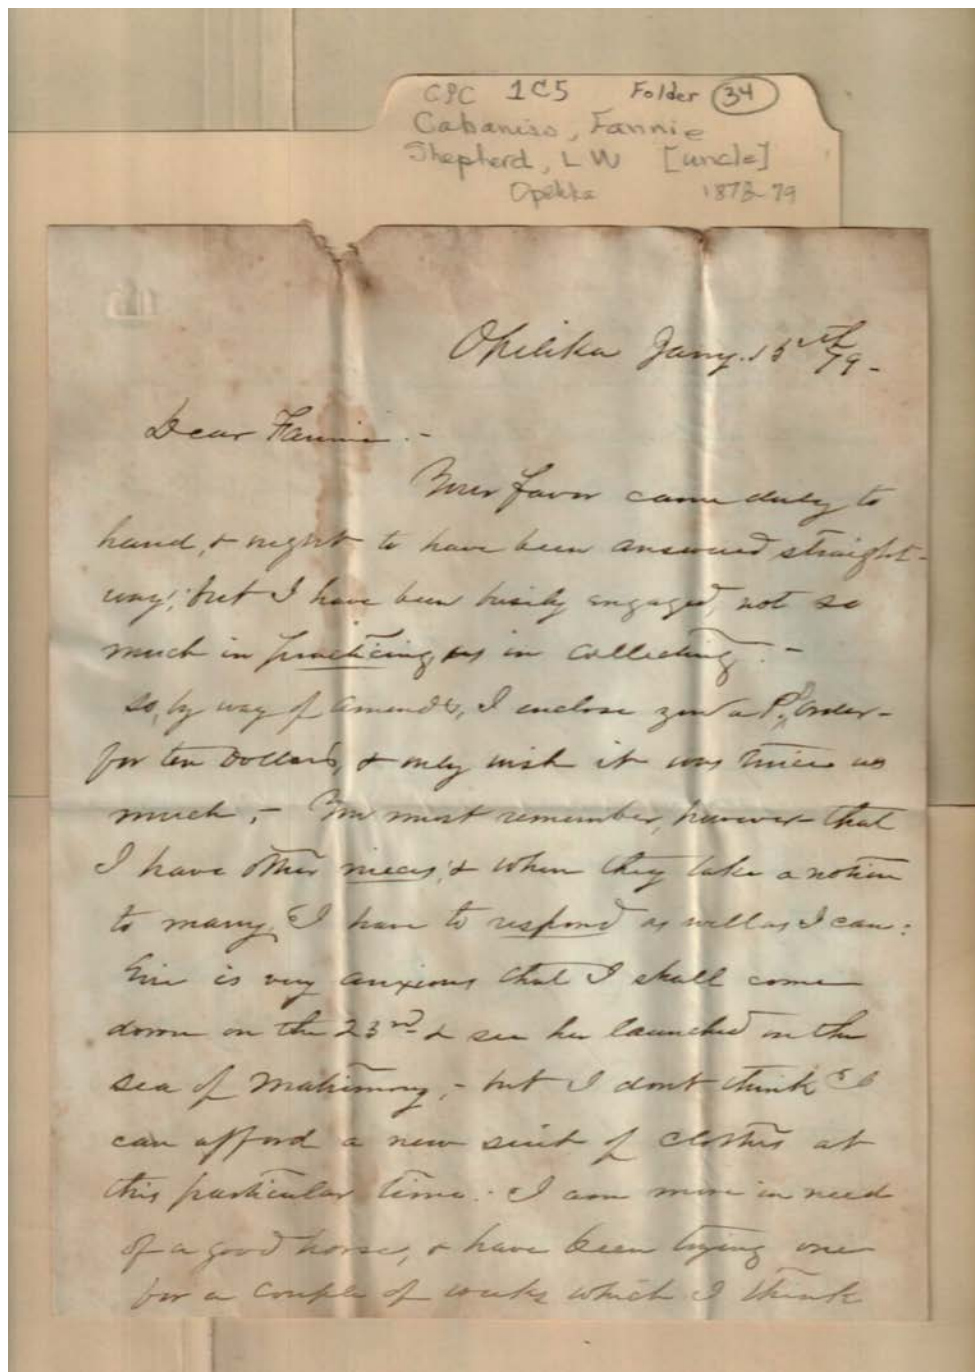 CPC 1C5 Folder 34
Cabaniss, Fannie
Shepherd, L W [uncle]
Opelika 1878-79
Opelika Jany. 15th 79-
Dear Fannie.-
Your favor came duly to
hand, & ought to have been answered straight-
way; but I have been busily engaged, not so
much in practicing, as in collecting.-
so, by way of amends, I enclose you a P. Order-
for ten Dollars, & only wish it was twice as
much.- You must remember, however- that
I have other nieces, & when they take a notion
to marry, I have to respond as well as I can:
is very anxious that I shall come
down on the 23rd & see her launched on the
sea of Matrimony,- but I dont think I
can afford a new suit of clothes at
this particular time. I am more in need
of a good horse, & have been trying one
for a couple of weeks which I think